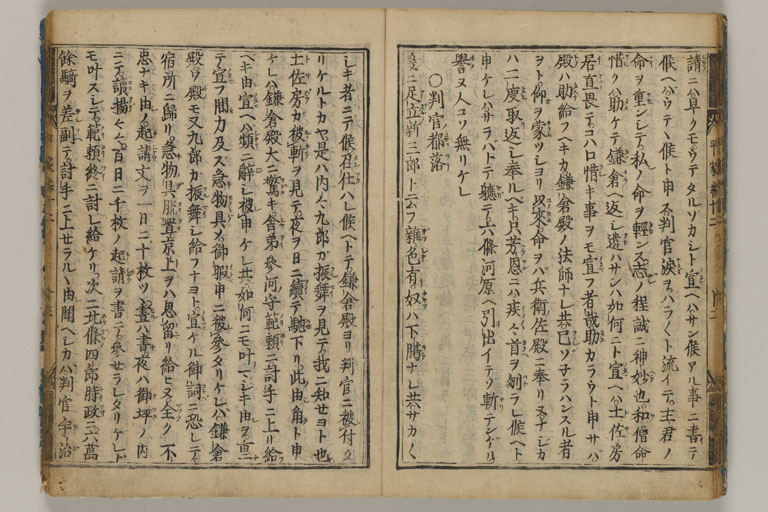 請ニハ早クモウテタルソカシト宣ヘハサン候アル事ニ書テ
候ヘハウテヽ候ト申ス判官涙ヲハラ〳〵ト流イテ主君ノ
命ヲ重ンシテ私ノ命ヲ輕ンス志ノ程誠ニ神妙也和僧命
惜クハ助ケテ鎌倉ヘ返シ遣ハサンハ如何ニト宣ヘハ土佐房
居直畏テコハロ惜キ事ヲモ宣フ者哉助カラウト申サハ
殿ハ助給フヘキカ鎌倉殿ノ法師ナレ共己ソナラハンスル者
ヲト仰ヲ蒙ツシヨリ以來命ヲハ兵衛佐殿ニ奉リヌナシカ
ハ二度取返シ奉ルヘキ只芳恩ニハ疾々首ヲ刎ラレ候ヘト
申ケレハサラハトテ軈テ六條河原ヘ引出イテソ斬テンケリ
譽ヌ人コソ無リケレ
〇判官都落
爰ニ足立新三郎ト云フ雜色有奴ハ下臈ナレ共サカ〳〵
シキ者ニテ候召仕ハレ候ヘトテ鎌倉殿ヨリ判官ニ被付タ
リケルトカヤ是ハ内々九郎カ振舞ヲ見テ我ニ知セヨト也
土佐房カ被斬ヲ見テ夜ヲ日ニ續テ馳下リ此由角ト申
ケレハ鎌倉殿大ニ驚キ舎弟參河守範頼ニ討手ニ上リ給
ヘキ由宣ヘハ頻ニ辭シ被申ケレ共如何ニモ叶マシキ由ヲ重
テ宣フ間力及ス急物具メ御暇申ニ被參タリケレハ鎌倉
殿ワ殿モ又九郎カ振舞シ給フナヨト宣ケル御詞ニ恐レテ
宿所ニ歸リ急物具脱置京上ヲハ思留リ給ヒヌ全ク不
忠ナキ由ノ起請文ヲ一日ニ十枚ツヽ晝ハ書夜ハ御坪ノ内
ニテ讀揚々々百日ニ千枚ノ起請ヲ書テ參セラレタリケレト
モ叶スシテ範頼終ニ討レ給ケリ次ニ北條四郎時政ニ六萬
餘騎ヲ差副テ討手ニ上セラルヽ由聞ヘシカハ判官宇治